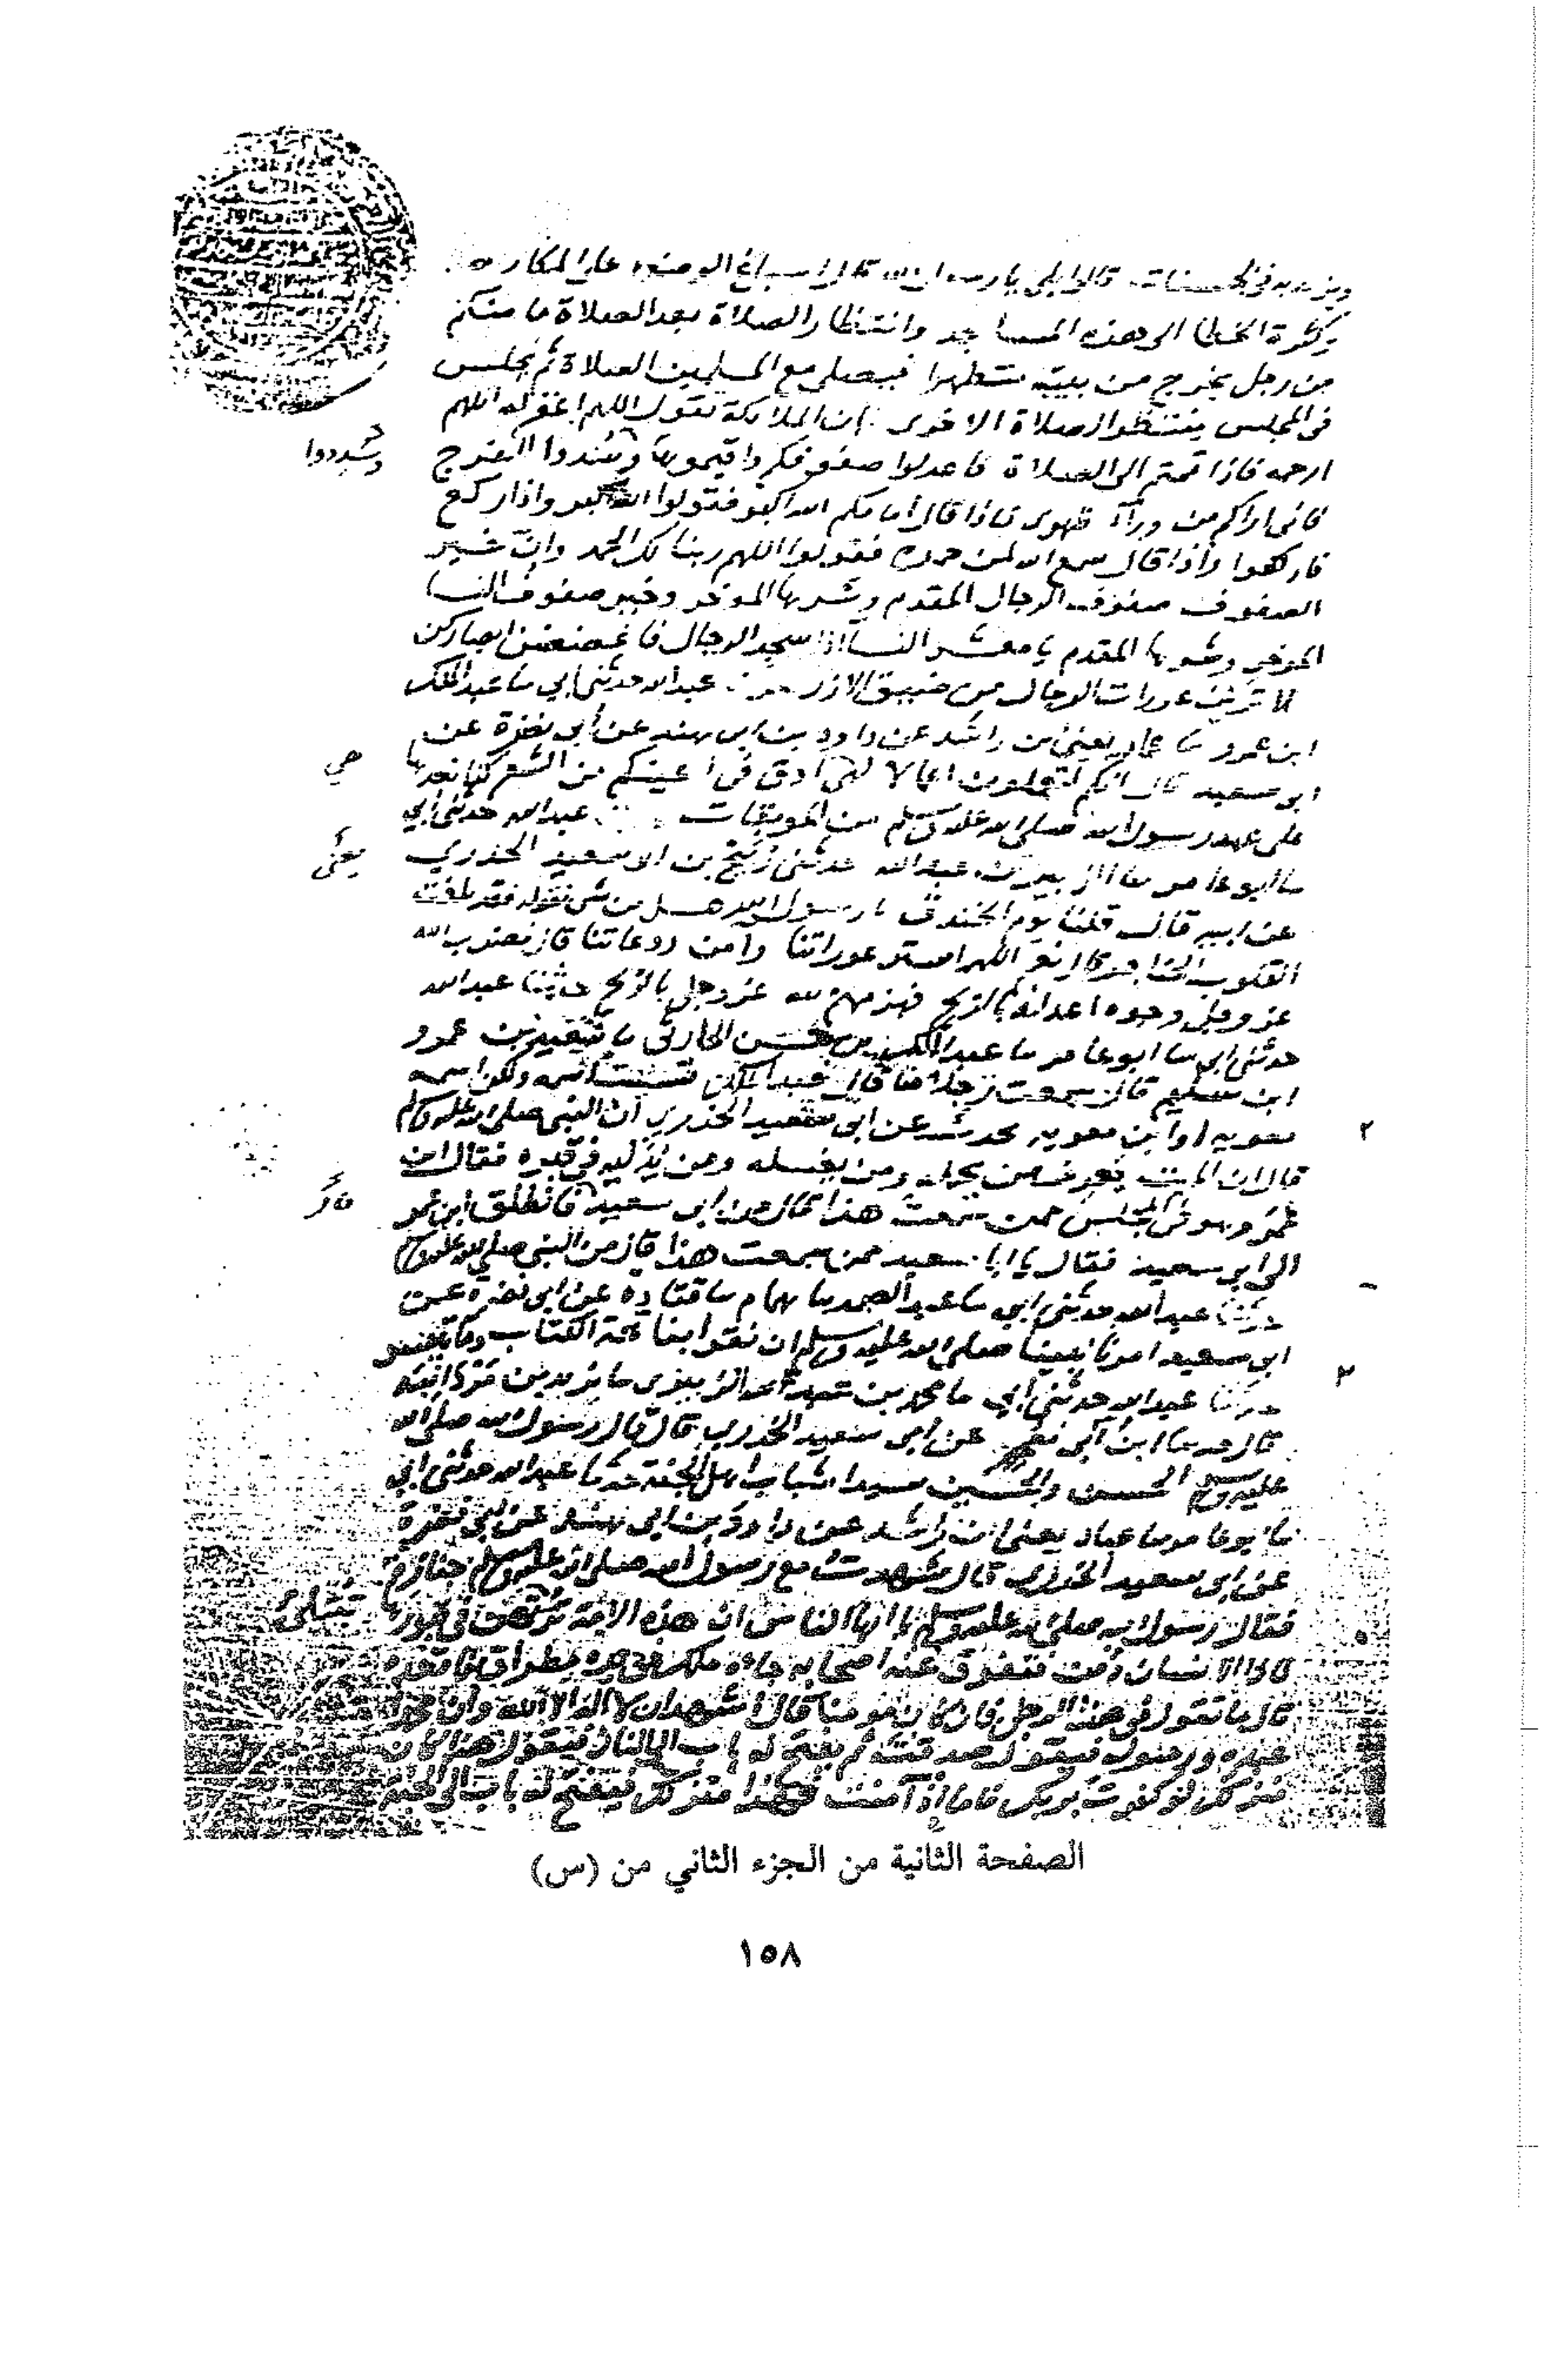 ويزيد به في الحسنات قالوا بلى يا رسول الله قال اسباغ الوضوء على المكاره
وكثرة الخطا الى هذه المساجد وانتظار الصلاة بعد الصلاة ما منكم
من رجل يخرج من بيته متطهرا فيصلي مع المسلمين الصلاة ثم يجلس
في المجلس ينتظر الصلاة الاخرى ان الملائكة تقول اللهم اغفر له اللهم
ارحمه فاذا قمتم الى الصلاة فاعدلوا صفوفكم واقيموها وسدوا الفرج
فاني اراكم من وراء ظهري فاذا قال امامكم الله اكبر فقولوا الله اكبر واذا ركع
فاركعوا واذا قال سمع الله لمن حمده فقولوا اللهم ربنا لك الحمد وان خير
الصفوف صفوف الرجال المقدم وشرها المؤخر وخير صفوف النسا
المؤخر وشرها المقدم يا معشر النسا اذا سجد الرجال فاغضضن ابصاركن
لا ترين عورات الرجال من ضيق الازر عبد الله حدثني ابي سا عبد الملك
ابن عمرو سا عباد يعني بن راشد عن داود بن ابي هند عن ابي نضرة عن
ابي سعيد قال انكم لتعملون اعمالا لهي ادق في اعينكم من الشعر كنا نعدها
على عهد رسول الله صلى الله عليه وسلم من الموبقات عبد الله حدثني ابي
سا ابو عامر سا الزبير بن عبد الله حدثني ربيح بن ابي سعيد الخدري
عن ابيه قال قلنا يوم الخندق يا رسول الله هل من شي نقوله فقد بلغت
القلوب الحناجر قال نعم اللهم استر عوراتنا وآمن روعاتنا قال فضرب الله
عز وجل وجوه اعدائه بالريح فهزمهم الله عز وجل بالريح حدثنا عبد الله
حدثني ابي سا ابو عامر سا عبد الملك بن حسن الحارثي سا سعيد بن عمرو
ابن سليم قال سمعت رجلا منا قال عبد الملك نسيت اسمه ولكن اسمه
معويه او ابن معويه يحدث عن ابي سعيد الخدري ان النبي صلى الله عليه وسلم
قال ان الميت يعرف من يحمله ومن يغسله ومن يدليه في قبره فقال ابن
عمر وهو في المجلس ممن سمعت هذا قال من ابي سعيد فانطلق ابن عمر
الى ابي سعيد فقال يا ابا سعيد ممن سمعت هذا قال من النبي صلى الله عليه وسلم
حدثنا عبد الله حدثني ابي سا عبد الصمد سا همام سا قتاده عن ابي نضرة عن
ابي سعيد امرنا نبينا صلى الله عليه وسلم ان نقرا بفاتحة الكتاب وما تيسر
حدثنا عبد الله حدثني ابي سا محمد بن عبد الله الزبيري سا يزيد بن مردانبه
قال سا ابن ابي نعم عن ابي سعيد الخدري قال قال رسول الله صلى الله
عليه وسلم الحسن والحسين سيدا شباب اهل الجنة حدثنا عبد الله حدثني ابي
سا ابو عامر سا عباد يعني ابن راشد عن داود بن ابي هند عن ابي نضرة
عن ابي سعيد الخدري قال شهدت مع رسول الله صلى الله عليه وسلم جنازة
فقال رسول الله صلى الله عليه وسلم يا ايها الناس ان هذه الامة تبتلى في قبورها
فاذا الانسان دفن فتفرق عنه اصحابه جاءه ملك في يده مطراق فاقعده
قال ما تقول في هذا الرجل فان كان مومنا قال اشهد ان لا اله الا الله وان محمدا
عبده ورسوله فيقول صدقت ثم يفتح له باب الى النار فيقول هذا كان
منزلك لو كفرت بربك فاما اذ آمنت فهذا منزلك فيفتح له باب الى الجنة
الصفحة الثانية من الجزء الثاني من (س)
١٥٨